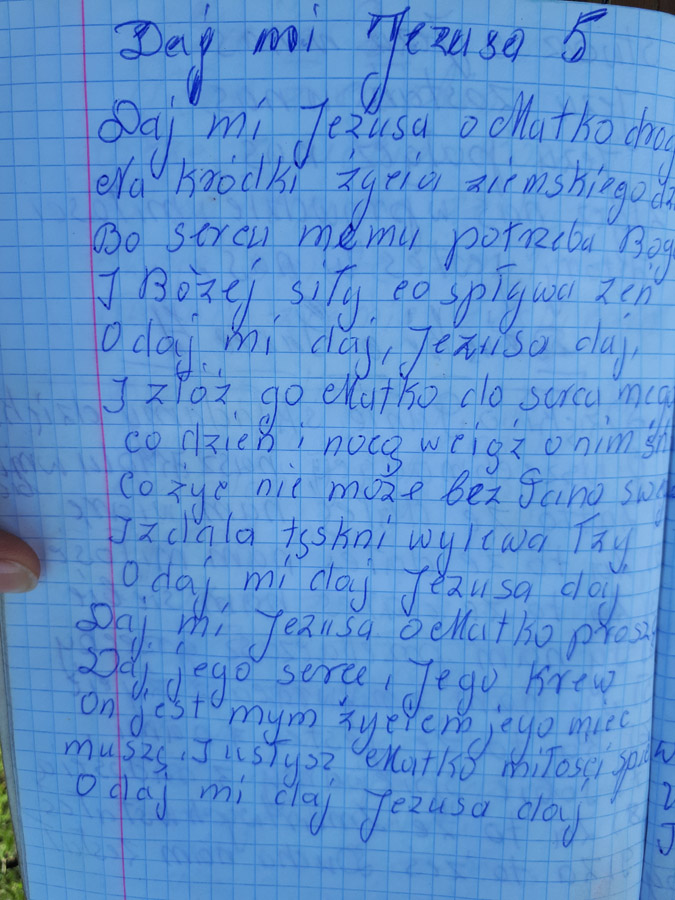 Daj mi Jezusa 5
Daj mi Jezusa o Matko drog
Na kródki życia ziemskiego dz
Bo sercu memu potrzeba Bog
I Bożej siły co spływa zeń
O daj mi daj, Jezusa daj,
I złóż go Matko do serca mego
co dzień i nocą wciąż o nim śn
Co żyć nie może bez Pana swe
I zdala tęskni wylewa łzy
O daj mi daj Jezusa daj
Daj mi Jezusa o Matko prosz
Daj jego serce, Jego krew
On jest mym życiem jego mieć
muszę. I usłysz Matko miłości śpi
O daj mi daj Jezusa daj